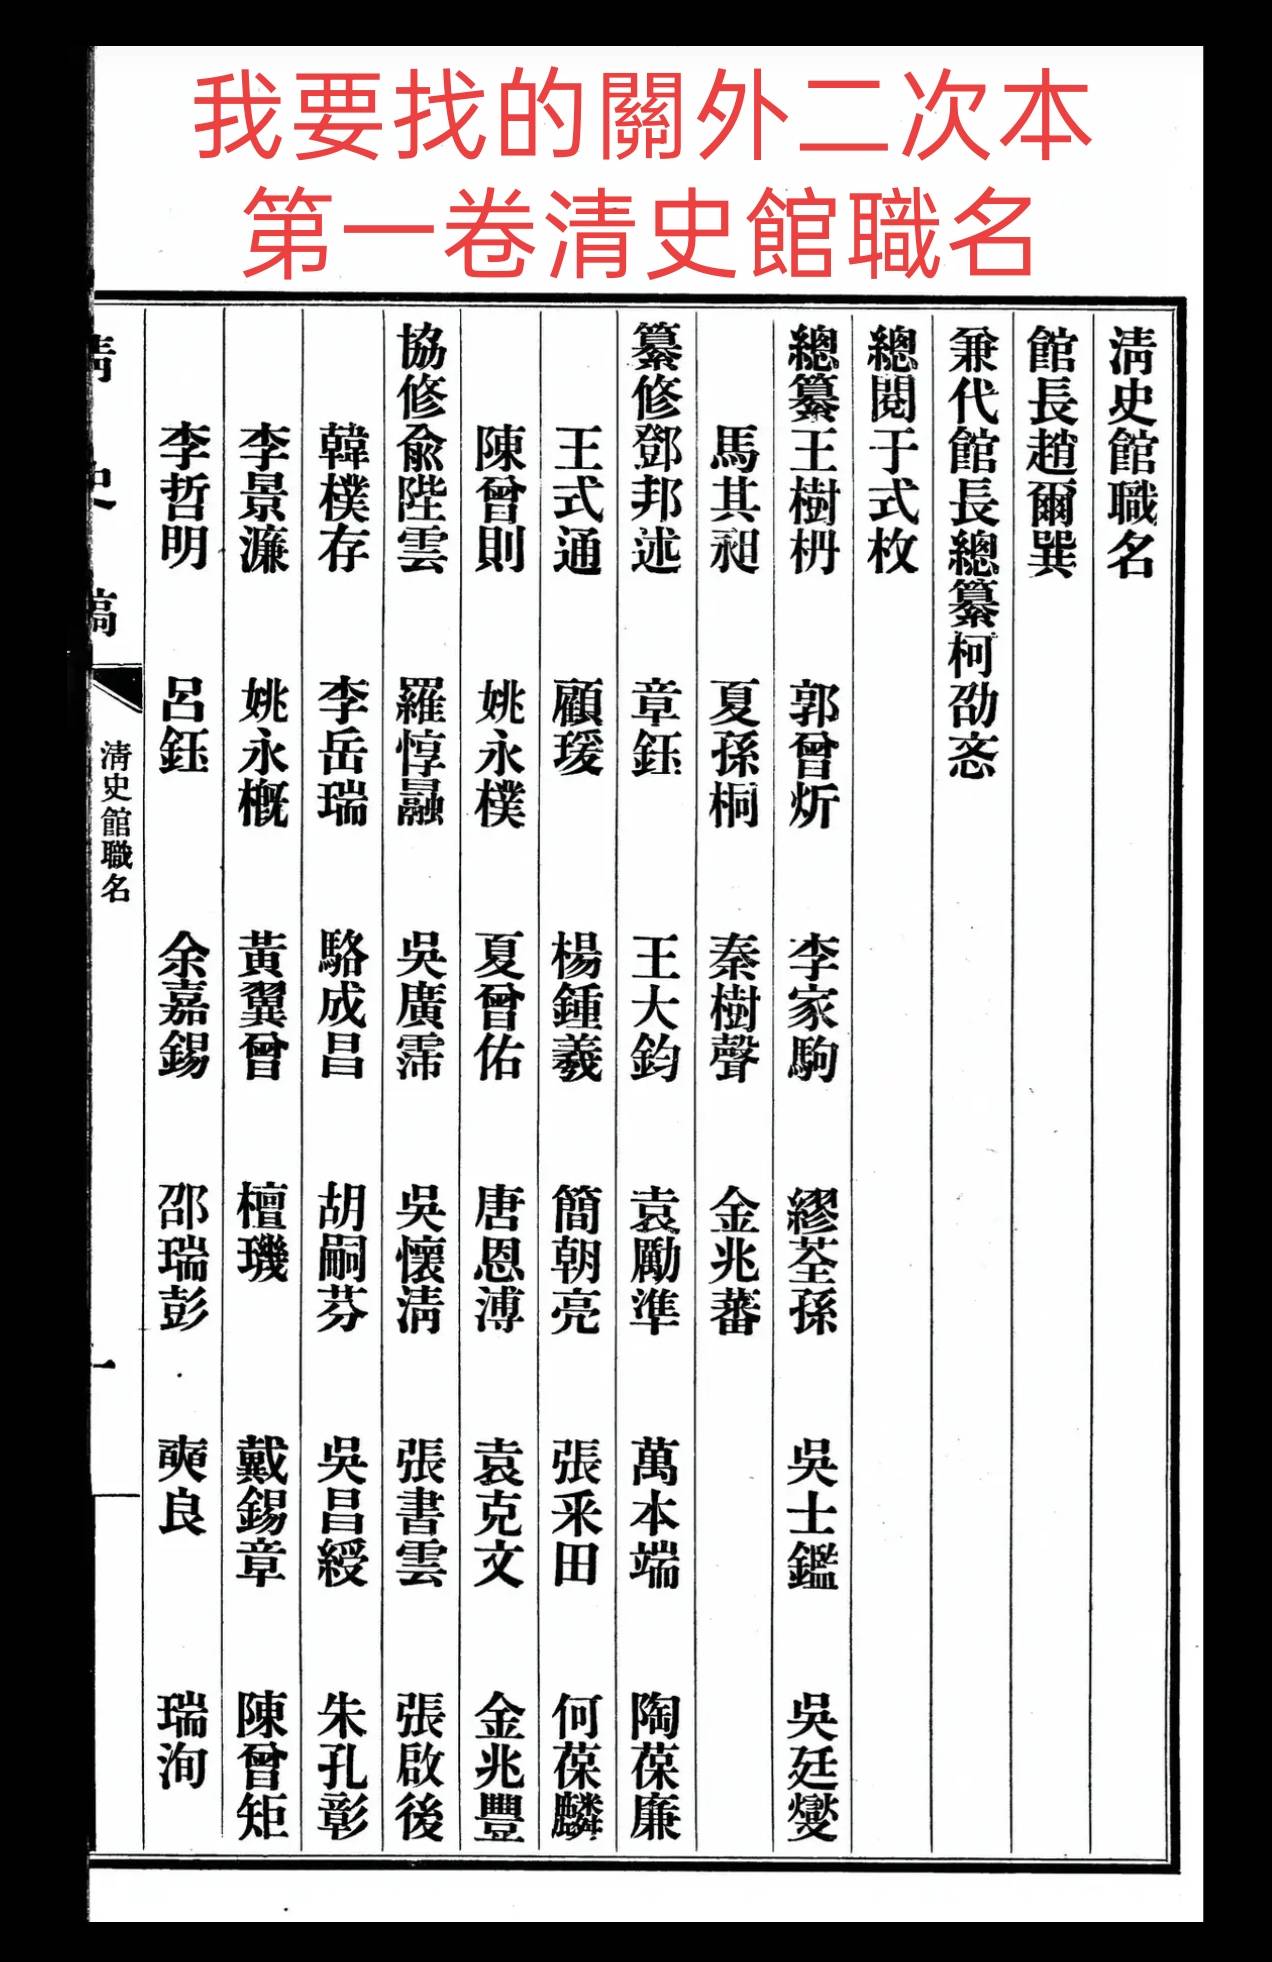 我要找的關外二次本
第一卷清史館職名
清史館職名
館長趙爾巽
兼代館長總纂柯劭忞
總閱于式枚
總纂王樹枏 郭曾炘 李家駒 繆荃孫 吳士鑑 吳廷燮
馬其昶 夏孫桐 秦樹聲 金兆蕃
纂修鄧邦述 章鈺 王大鈞 袁勵準 萬本端 陶葆廉
王式通 顧瑗 楊鍾羲 簡朝亮 張采田 何葆麟
陳曾則 姚永樸 夏曾佑 唐恩溥 袁克文 金兆豐
協修俞陛雲 羅惇曧 吳廣霈 吳懷清 張書雲 張啟後
韓樸存 李岳瑞 駱成昌 胡嗣芬 吳昌綬 朱孔彰
李景濂 姚永概 黃翼曾 檀璣 戴錫章 陳曾矩
李哲明 呂鈺 余嘉錫 邵瑞彭 奭良 瑞洵
清史稿 清史館職名 一